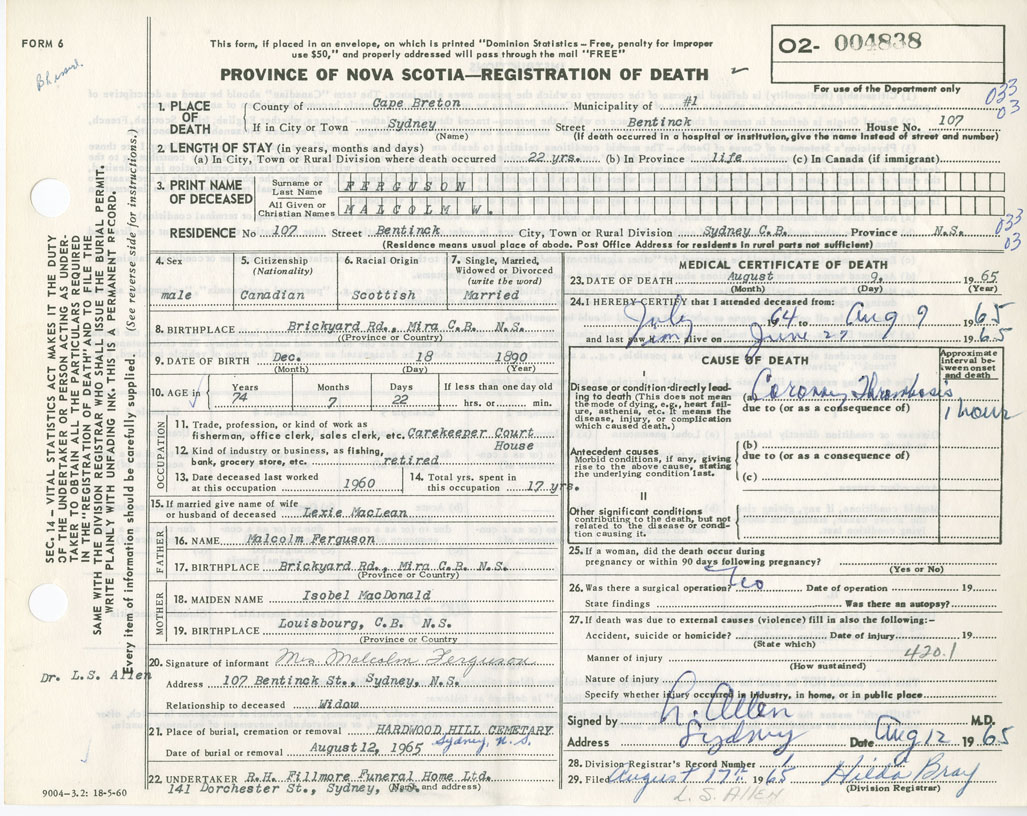 FORM 6
This form, if placed in an envelope, on which is printed "Dominion Statistics – Free, penalty for improper
use $50," and properly addressed will pass through the mail "FREE"
PROVINCE OF NOVA SCOTIA—REGISTRATION OF DEATH
O2- 004838
For use of the Department only
033
03
1. PLACE OF DEATH
County of Cape Breton Municipality of #1
If in City or Town Sydney Street Bentinck House No. 107
(Name) (If death occurred in a hospital or institution, give the name instead of street and number)
2. LENGTH OF STAY (in years, months and days)
(a) In City, Town or Rural Division where death occurred 22 yrs. (b) In Province life (c) In Canada (if immigrant)
3. PRINT NAME OF DECEASED
Surname or Last Name FERGUSON
All Given or Christian Names MALCOLM W.
033
03
RESIDENCE No 107 Street Bentinck City, Town or Rural Division Sydney C.B. Province N.S.
(Residence means usual place of abode. Post Office Address for residents in rural parts not sufficient)
4. Sex
male
5. Citizenship (Nationality)
Canadian
6. Racial Origin
Scottish
7. Single, Married, Widowed or Divorced (write the word)
Married
8. BIRTHPLACE Brickyard Rd., Mira C.B. N.S.
(Province or Country)
9. DATE OF BIRTH Dec. 18 1890
(Month) (Day) (Year)
10. AGE in Years 74 Months 7 Days 22 If less than one day old hrs. or min.
OCCUPATION
11. Trade, profession, or kind of work as
fisherman, office clerk, sales clerk, etc. Carekeeper Court
House
12. Kind of industry or business, as fishing,
bank, grocery store, etc. retired
13. Date deceased last worked at this occupation 1960
14. Total yrs. spent in this occupation 17 yrs.
15. If married give name of wife
or husband of deceased Lexie MacLean
FATHER
16. NAME Malcolm Ferguson
17. BIRTHPLACE Brickyard Rd., Mira C.B. N.S.
(Province or Country)
MOTHER
18. MAIDEN NAME Isobel MacDonald
19. BIRTHPLACE Louisbourg, C.B. N.S.
(Province or Country)
20. Signature of informant Mrs Malcolm Ferguson
Address 107 Bentinck St., Sydney, N.S.
Relationship to deceased Widow
21. Place of burial, cremation or removal HARDWOOD HILL CEMETARY
Sydney, N.S.
Date of burial or removal August 12, 1965
22. UNDERTAKER R.H. Fillmore Funeral Home Ltd.
141 Dorchester St., Sydney, (Name and address)
MEDICAL CERTIFICATE OF DEATH
23. DATE OF DEATH August 9, 1965
(Month) (Day) (Year)
24. I HEREBY CERTIFY that I attended deceased from:
July 1964 to Aug 9 1965
and last saw him alive on June 27 1965
CAUSE OF DEATH
Approximate interval between onset and death
I
Disease or condition directly leading to death (This does not mean the mode of dying, e.g., heart failure, asthenia, etc. It means the disease, injury, or complication which caused death.)
(a) Coronary Thrombosis 1 hour
due to (or as a consequence of)
Antecedent causes
Morbid conditions, if any, giving rise to the above cause, stating the underlying condition last.
(b)
due to (or as a consequence of)
(c)
II
Other significant conditions
contributing to the death, but not related to the disease or condition causing it.
25. If a woman, did the death occur during
pregnancy or within 90 days following pregnancy?
(Yes or No)
26. Was there a surgical operation? No Date of operation 19
State findings Was there an autopsy?
27. If death was due to external causes (violence) fill in also the following:–
Accident, suicide or homicide? Date of injury 19
(State which)
Manner of injury 420.1
(How sustained)
Nature of injury
Specify whether injury occurred in industry, in home, or in public place
Signed by L. Allen M.D.
Address Sydney Date Aug 12 1965
28. Division Registrar's Record Number 1
29. Filed August 17th 1965 Hilda Bray
(Division Registrar)
L. S. ALLEN
SEC. 14 – VITAL STATISTICS ACT MAKES IT THE DUTY
OF THE UNDERTAKER OR PERSON ACTING AS UNDER-
TAKER TO OBTAIN ALL THE PARTICULARS REQUIRED
IN THE "REGISTRATION OF DEATH" AND TO FILE THE
SAME WITH THE DIVISION REGISTRAR WHO SHALL ISSUE THE BURIAL PERMIT.
WRITE PLAINLY WITH UNFADING INK. THIS IS A PERMANENT RECORD.
Every item of information should be carefully supplied. (See reverse side for instructions.)
Dr. L.S. Allen
9004–3.2: 18-5-60